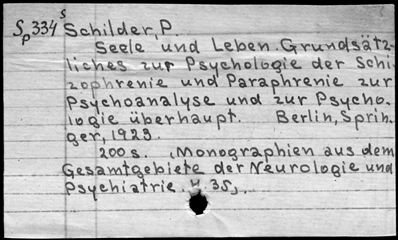 Sp334s Schilder, P.
Seele und Leben. Grundsätz-
liches zur Psychologie der Schi-
zophrenie und Paraphrenie zur
Psychoanalyse und zur Psycho-
logie überhaupt. Berlin, Sprin-
ger, 1923.
200 s. (Monographien aus dem
Gesamtgebiete der Neurologie und
Psychiatrie. H. 35).